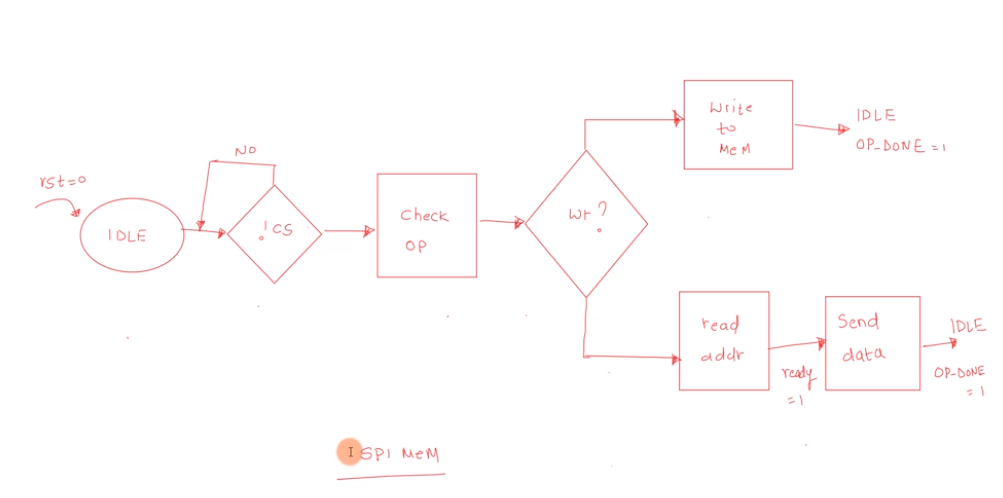 rst=0
IDLE
NO
!CS
Check
OP
Wr?
Write
to
MeM
IDLE
OP_DONE =1
read
addr
ready
=1
Send
data
IDLE
OP-DONE
=1
SPI MeM